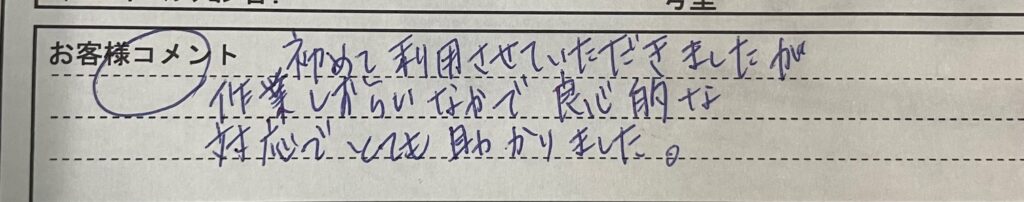 お客様コメント 初めて利用させていただきましたが
作業しづらいなかで良心的な
対応でとても助かりました。